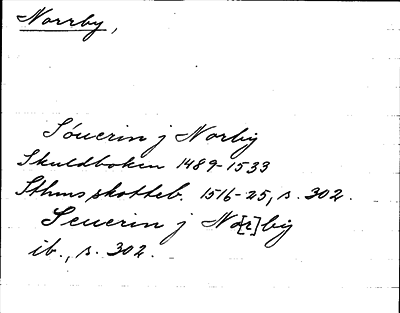 Norrby,
Sóuerin j Norby
Skuldboken 1489-1533
Sthms skotteb. 1516-25, s. 302.
Seuerin j No[r]by
ib., s. 302.